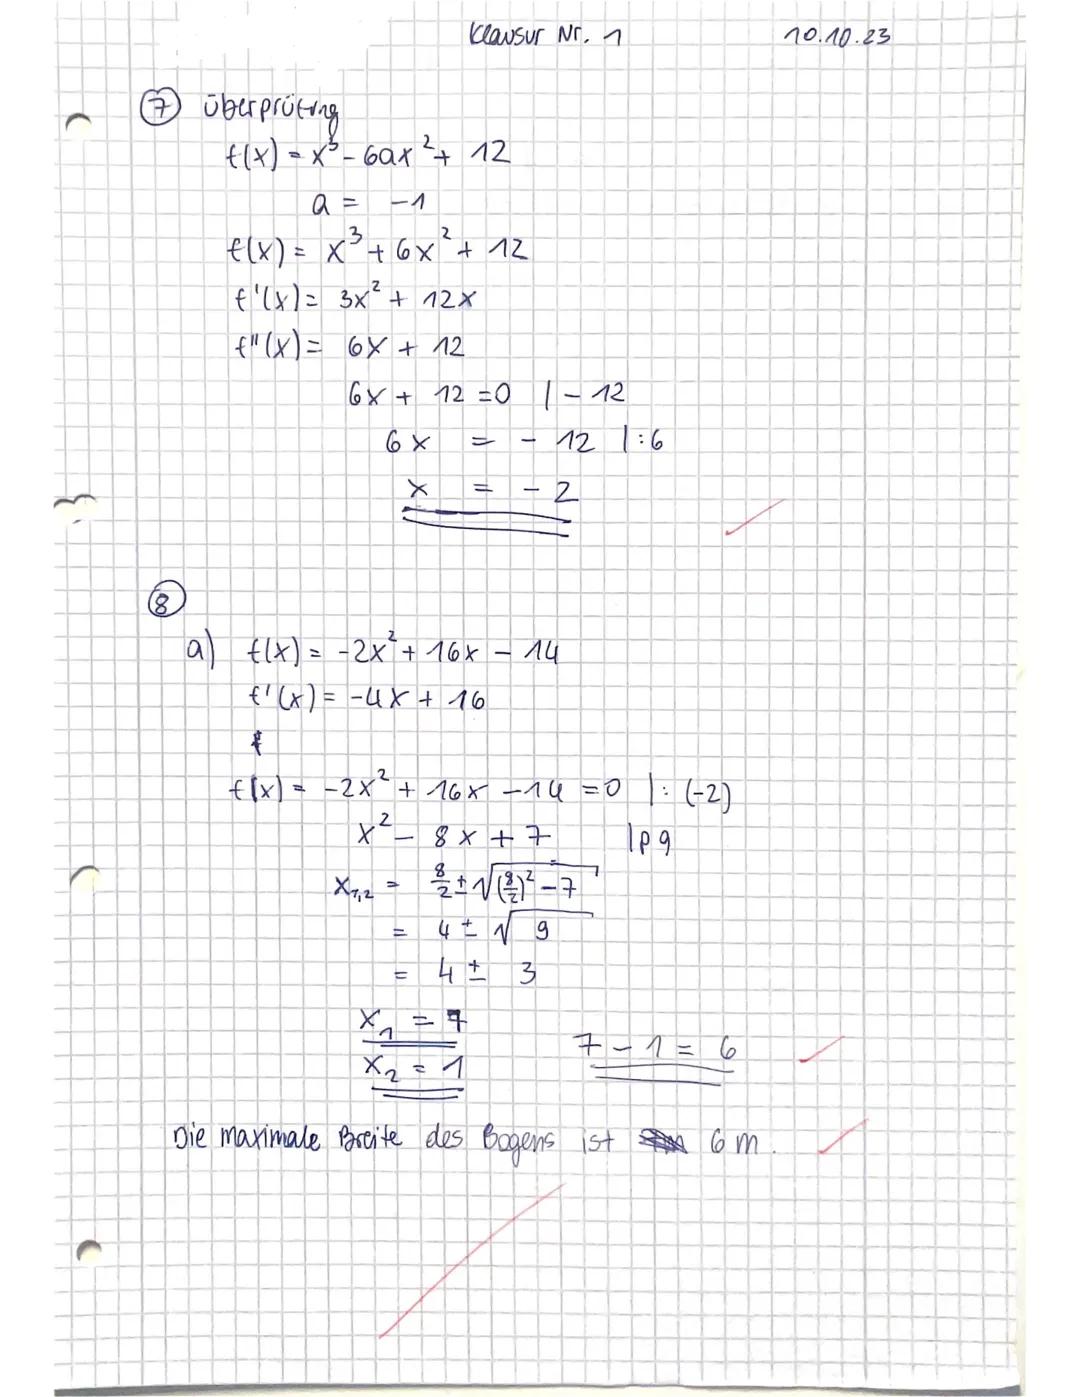 Klausur Nr. 1 10.10.23
⑦ Überprüfung
f(x) = x³ - 6ax² + 12
a = -1
f(x) = x³ + 6x² + 12
f'(x) = 3x² + 12x
f''(x) = 6x + 12
6x + 12 = 0 | - 12
6x = - 12 | :6
x = - 2
⑧
a) f(x) = -2x² + 16x - 14
f'(x) = -4x + 16
f(x) = -2x² + 16x - 14 = 0 | : (-2)
x² - 8x + 7 | pq
x₁,₂ = 8/2 ± √((8/2)² - 7)
= 4 ± √9
= 4 ± 3
x₁ = 7
x₂ = 1 7 - 1 = 6
Die maximale Breite des Bogens ist 6 m.